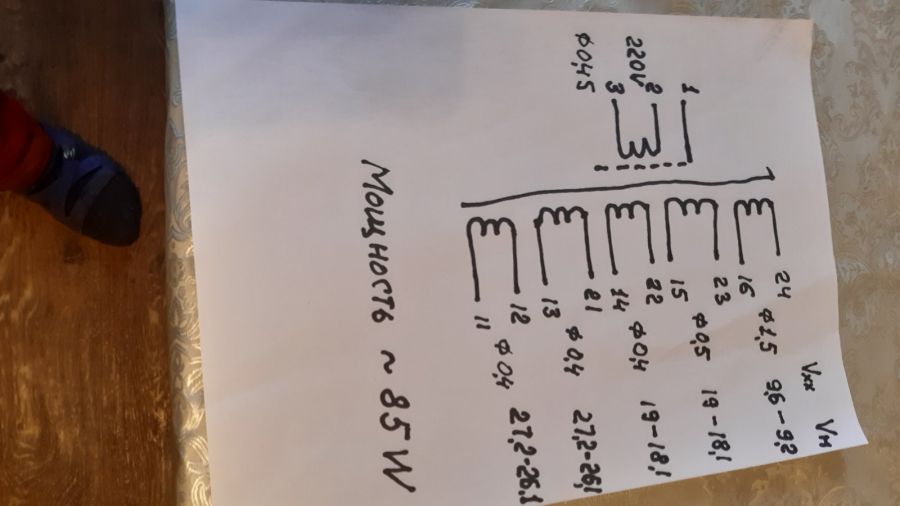 Vхх Vн
1
220V 2
ø0,45 3
24 ø1,5 9,6-9,2
16
23 ø0,5 19-18,1
15
22 ø0,4 19-18,1
14
21 ø0,4 27,2-26,1
13
12 ø0,4 27,2-26,1
11
Мощность ~ 85W